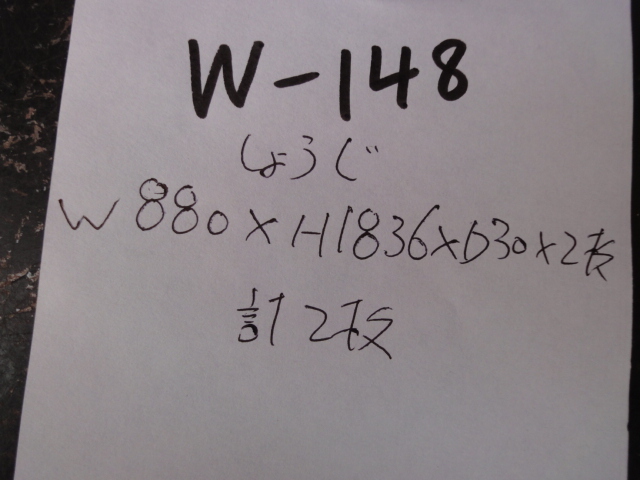 W-148
しょうじ
W880×H1836×D30×2枚
計2枚